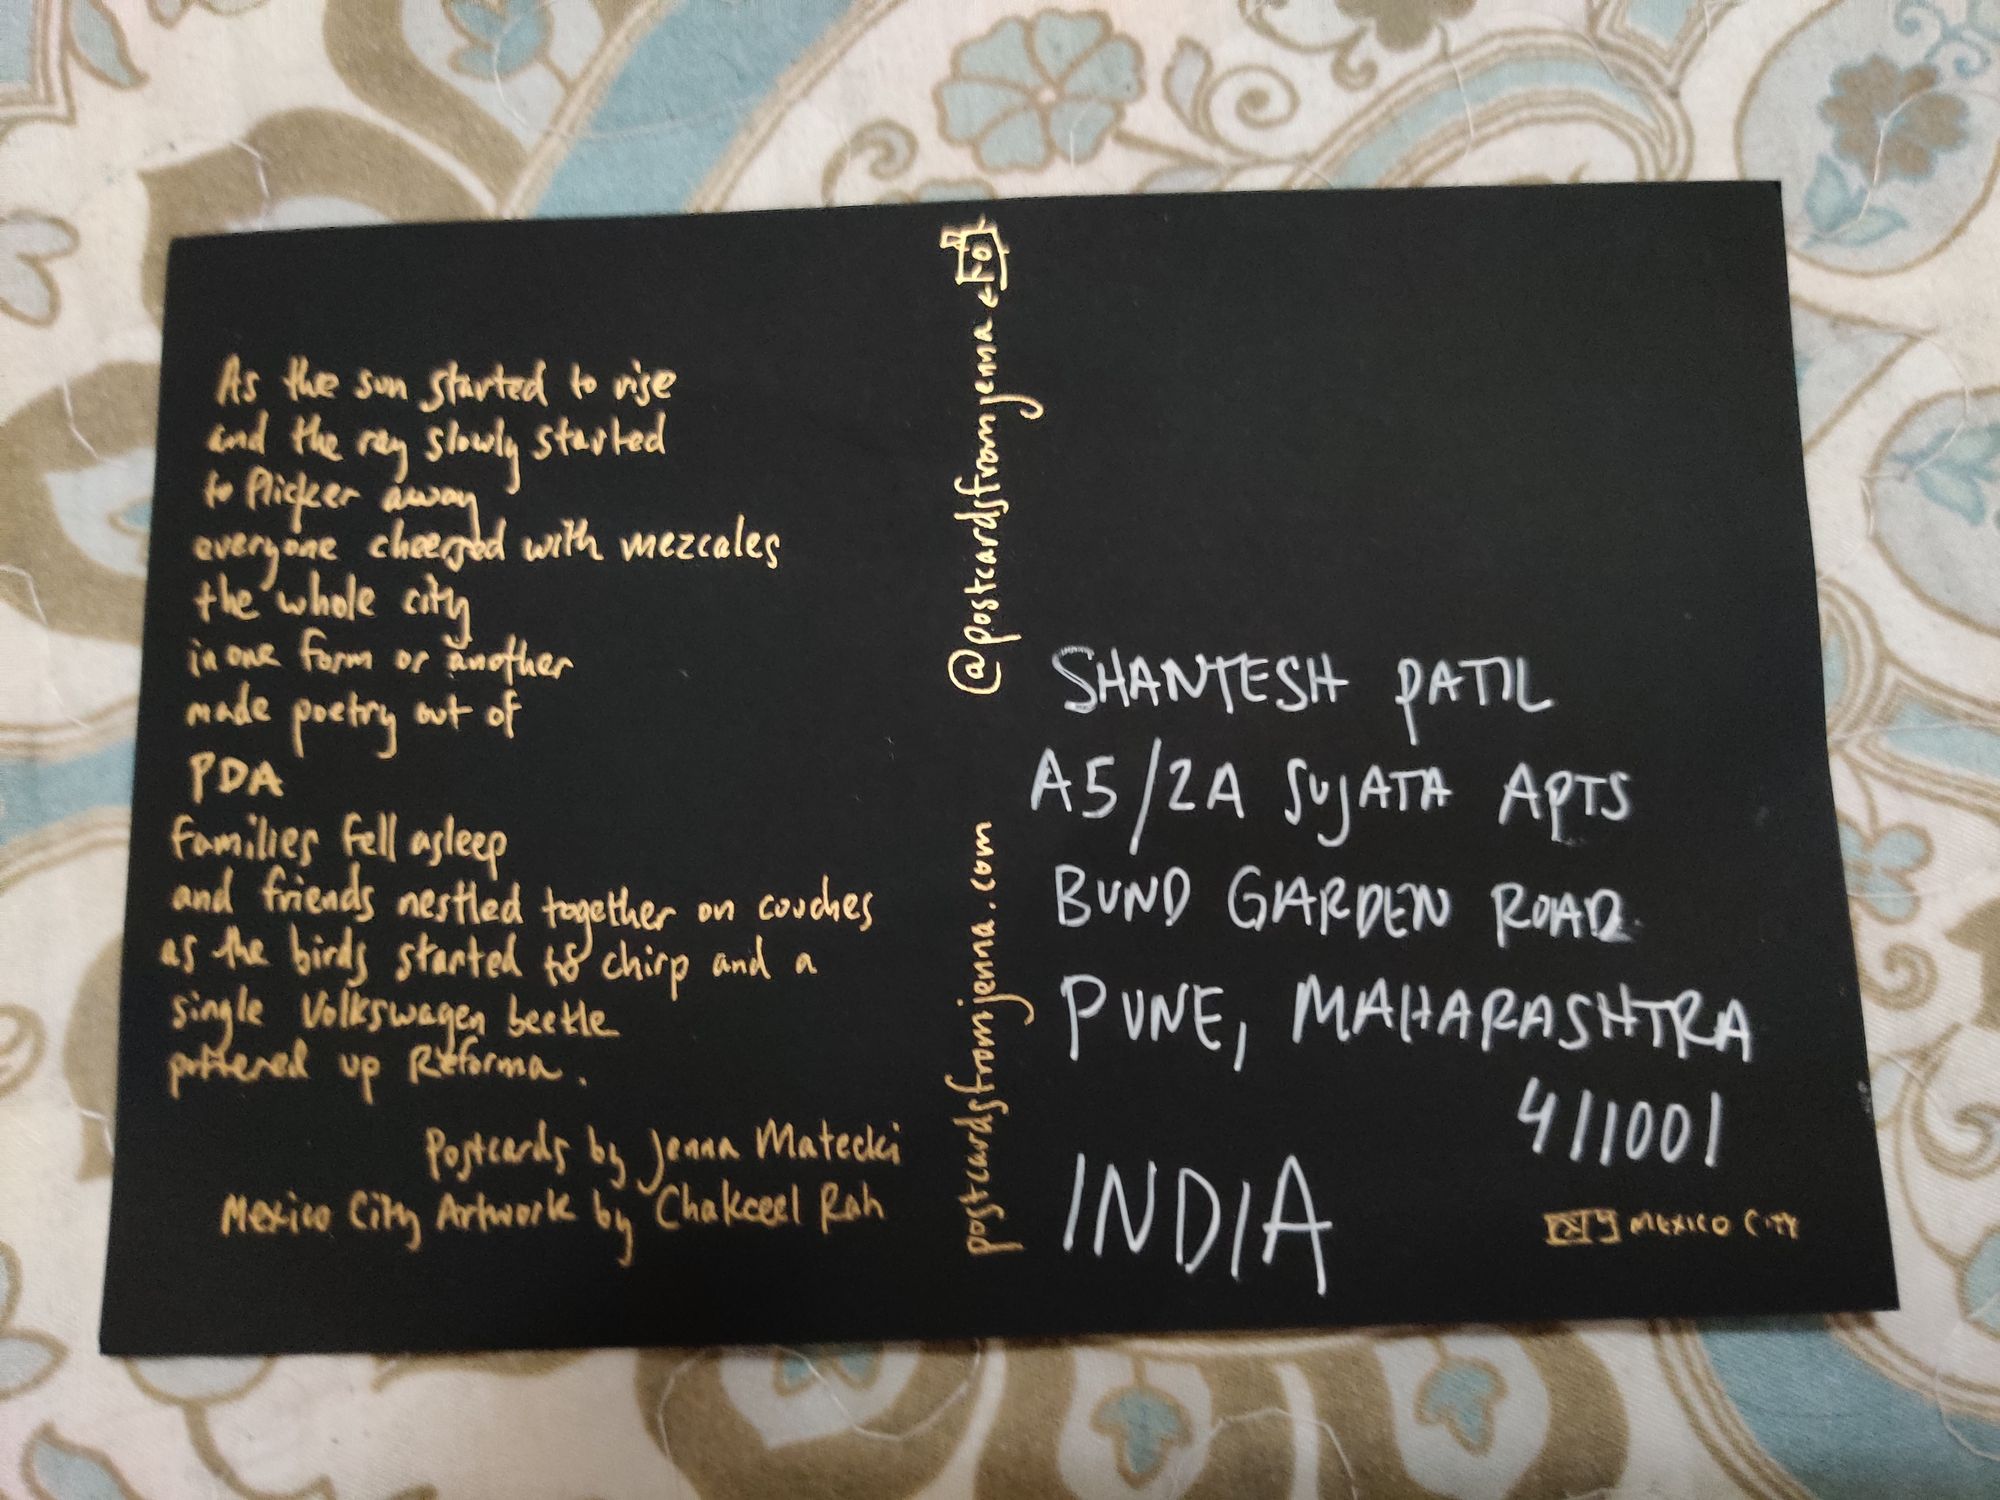 As the sun started to rise
and the ray slowly started
to flicker away
everyone cheersed with mezcales
the whole city
in one form or another
made poetry out of
PDA
families fell asleep
and friends nestled together on couches
as the birds started to chirp and a
single Volkswagen beetle
puttered up Reforma.
Postcards by Jenna Matecki
Mexico City Artwork by Chakceel Rah
@postcardsfromjenna
postcardsfromjenna.com
SHANTESH PATIL
A5/2A SUJATA APTS
BUND GARDEN ROAD
PUNE, MAHARASHTRA
411001
INDIA
MEXICO CITY